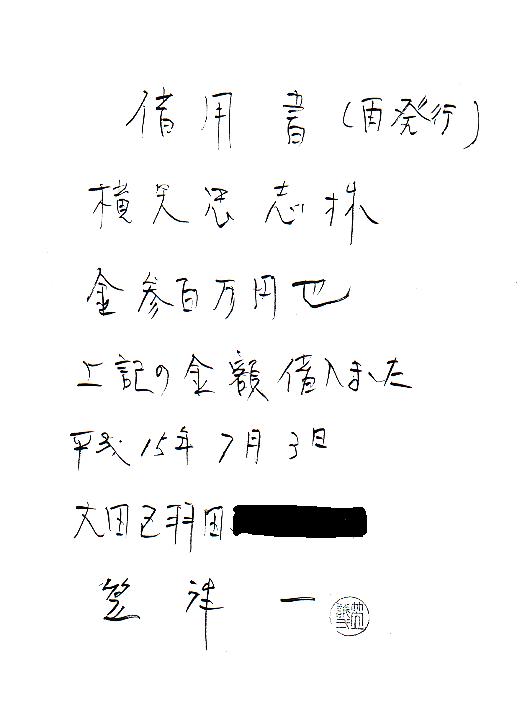 借用書(再発行)
横矢忠志様
金参百万円也
上記の金額借入ました
平成15年7月3日
大田区羽田
笠 洋一